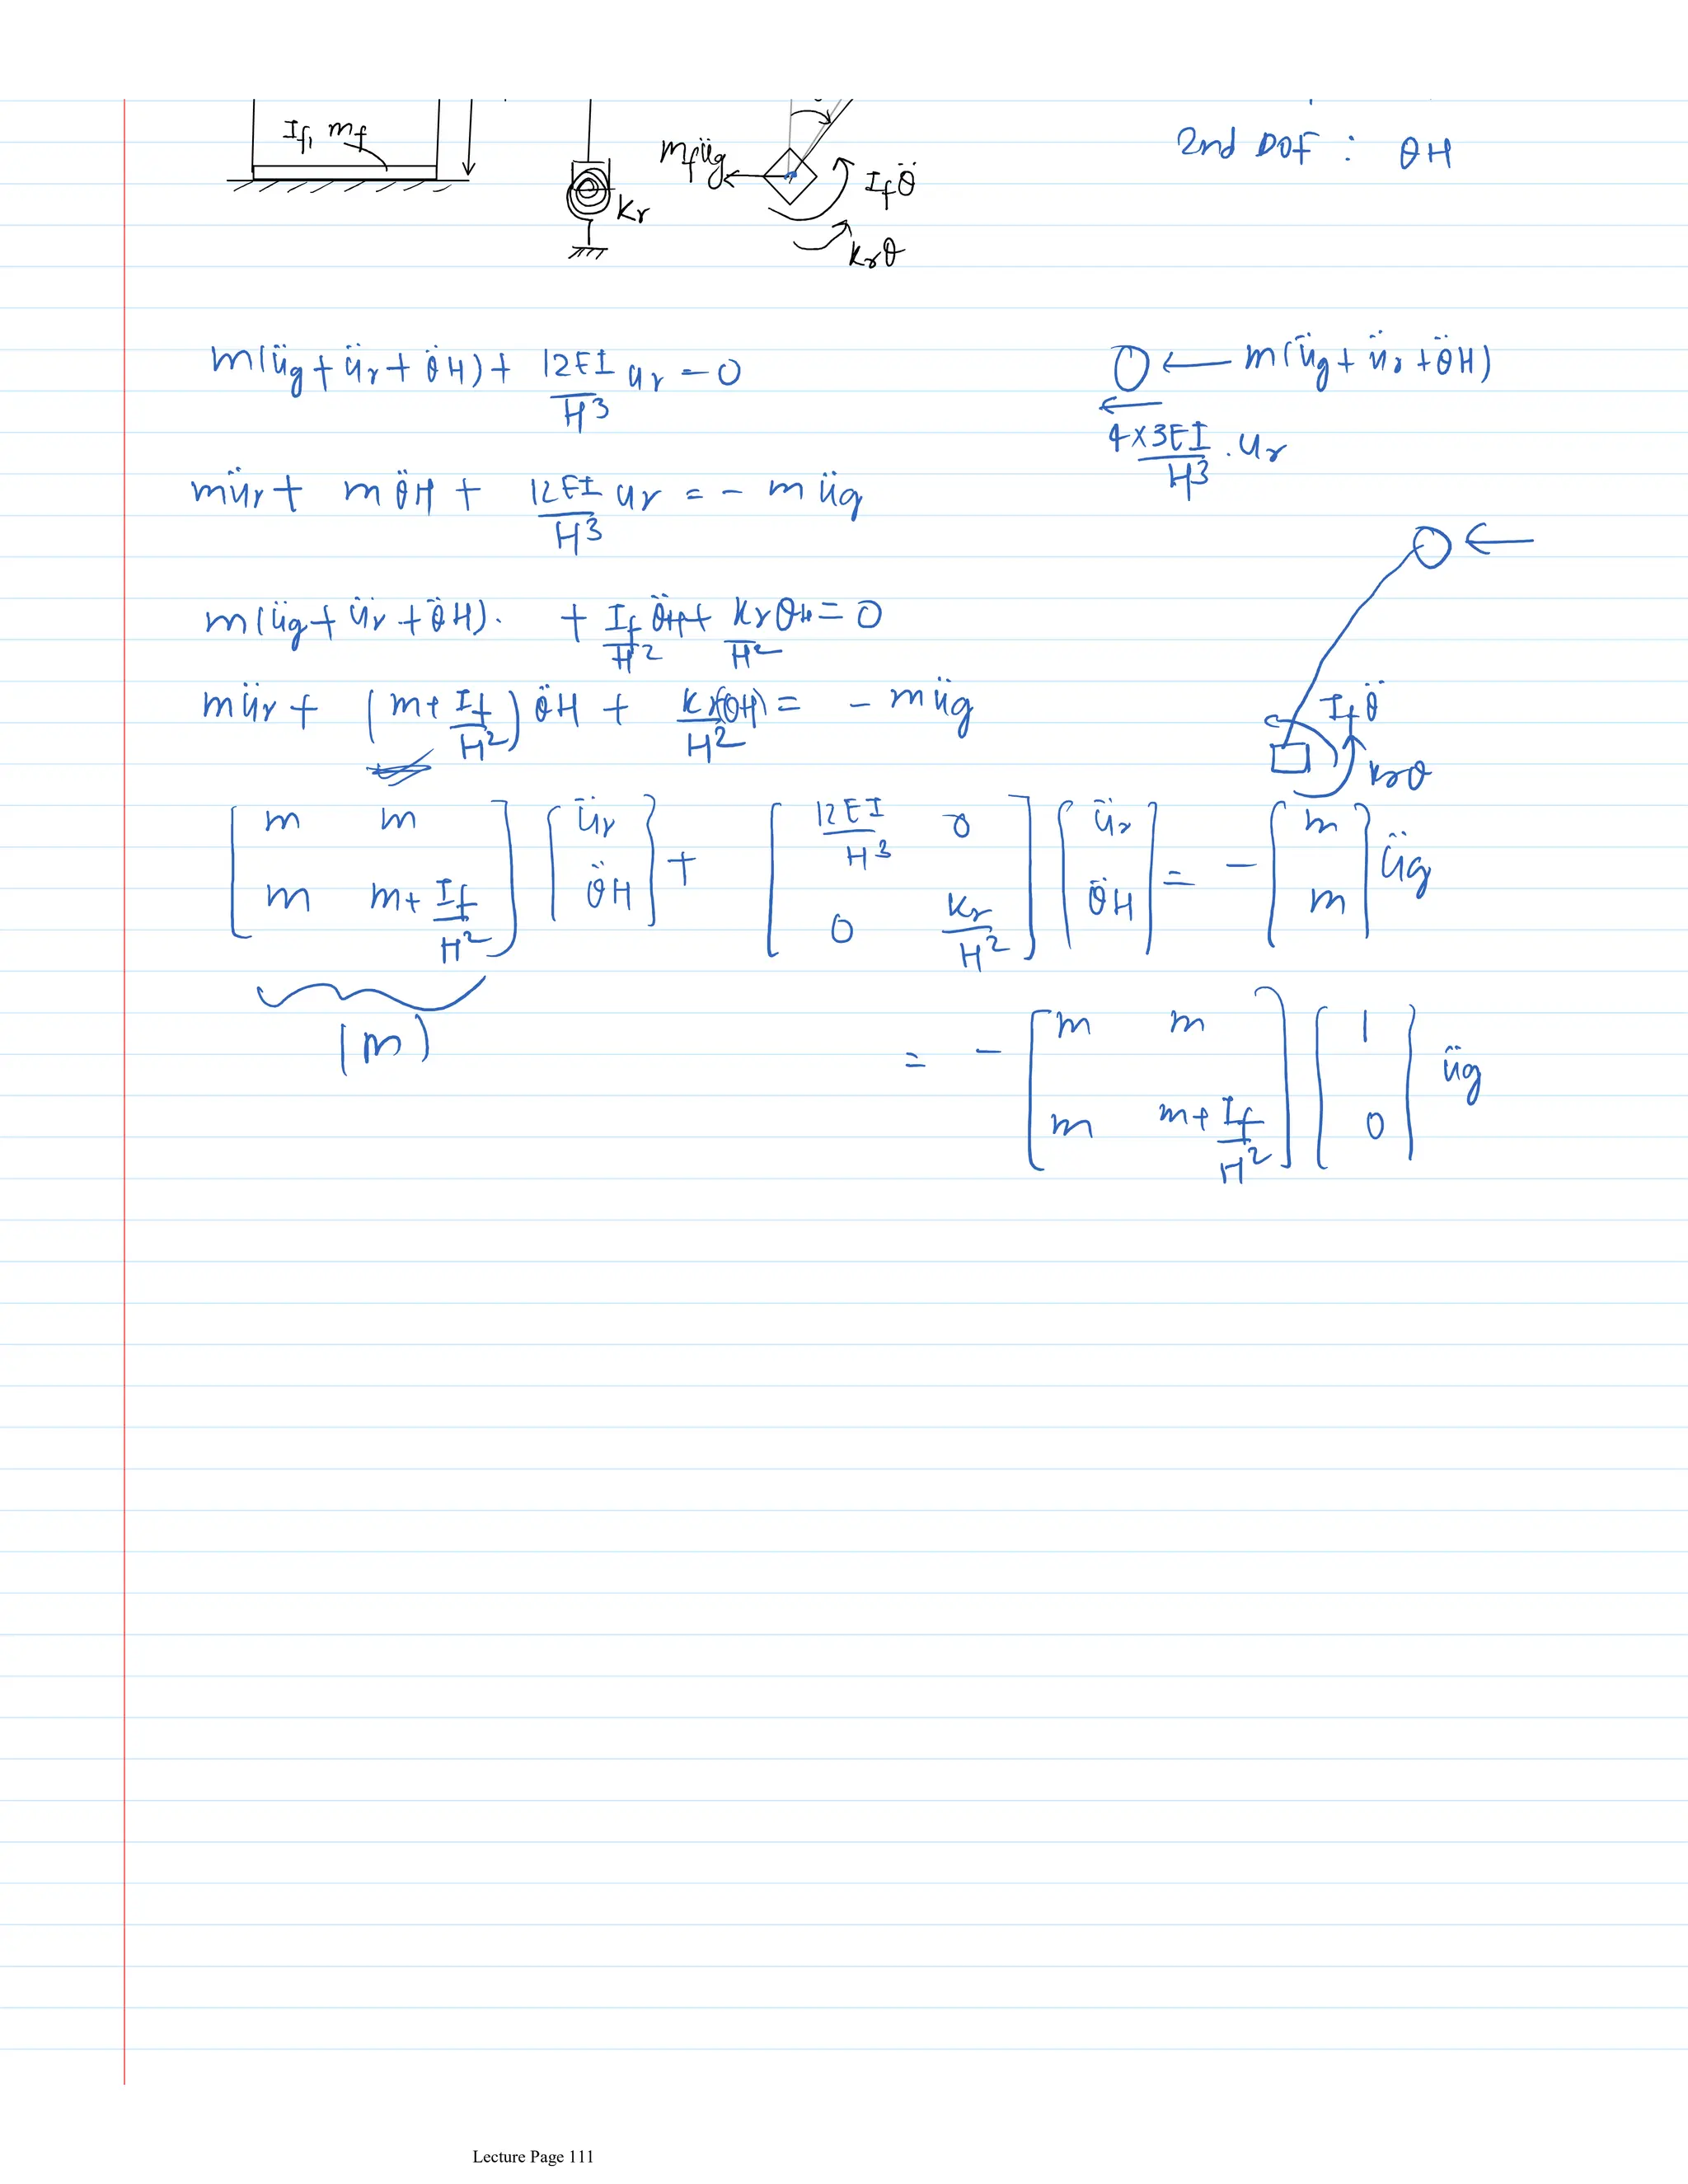 If, mf
mfüg
If θ̈
Kr
Krθ
2nd DOF : θH
m(üg + ür + θ̈H) + 12EI/H³ ur = 0
← m(üg + ür + θ̈H)
4×3EI/H³ . ur
mür + mθ̈H + 12EI/H³ ur = - m üg
m(üg + ür + θ̈H). + If/H² θ̈H + KrθH/H² = 0
mür + (m + If/H²) θ̈H + Kr(θH)/H² = - müg
If θ̈
krθ
[m m; m m+If/H²] {ür; θ̈H} + [12EI/H³ 0; 0 Kr/H²] {ür; θ̈H} = - {m; m} üg
[m]
= - [m m; m m+If/H²] {1; 0} üg
Lecture Page 111